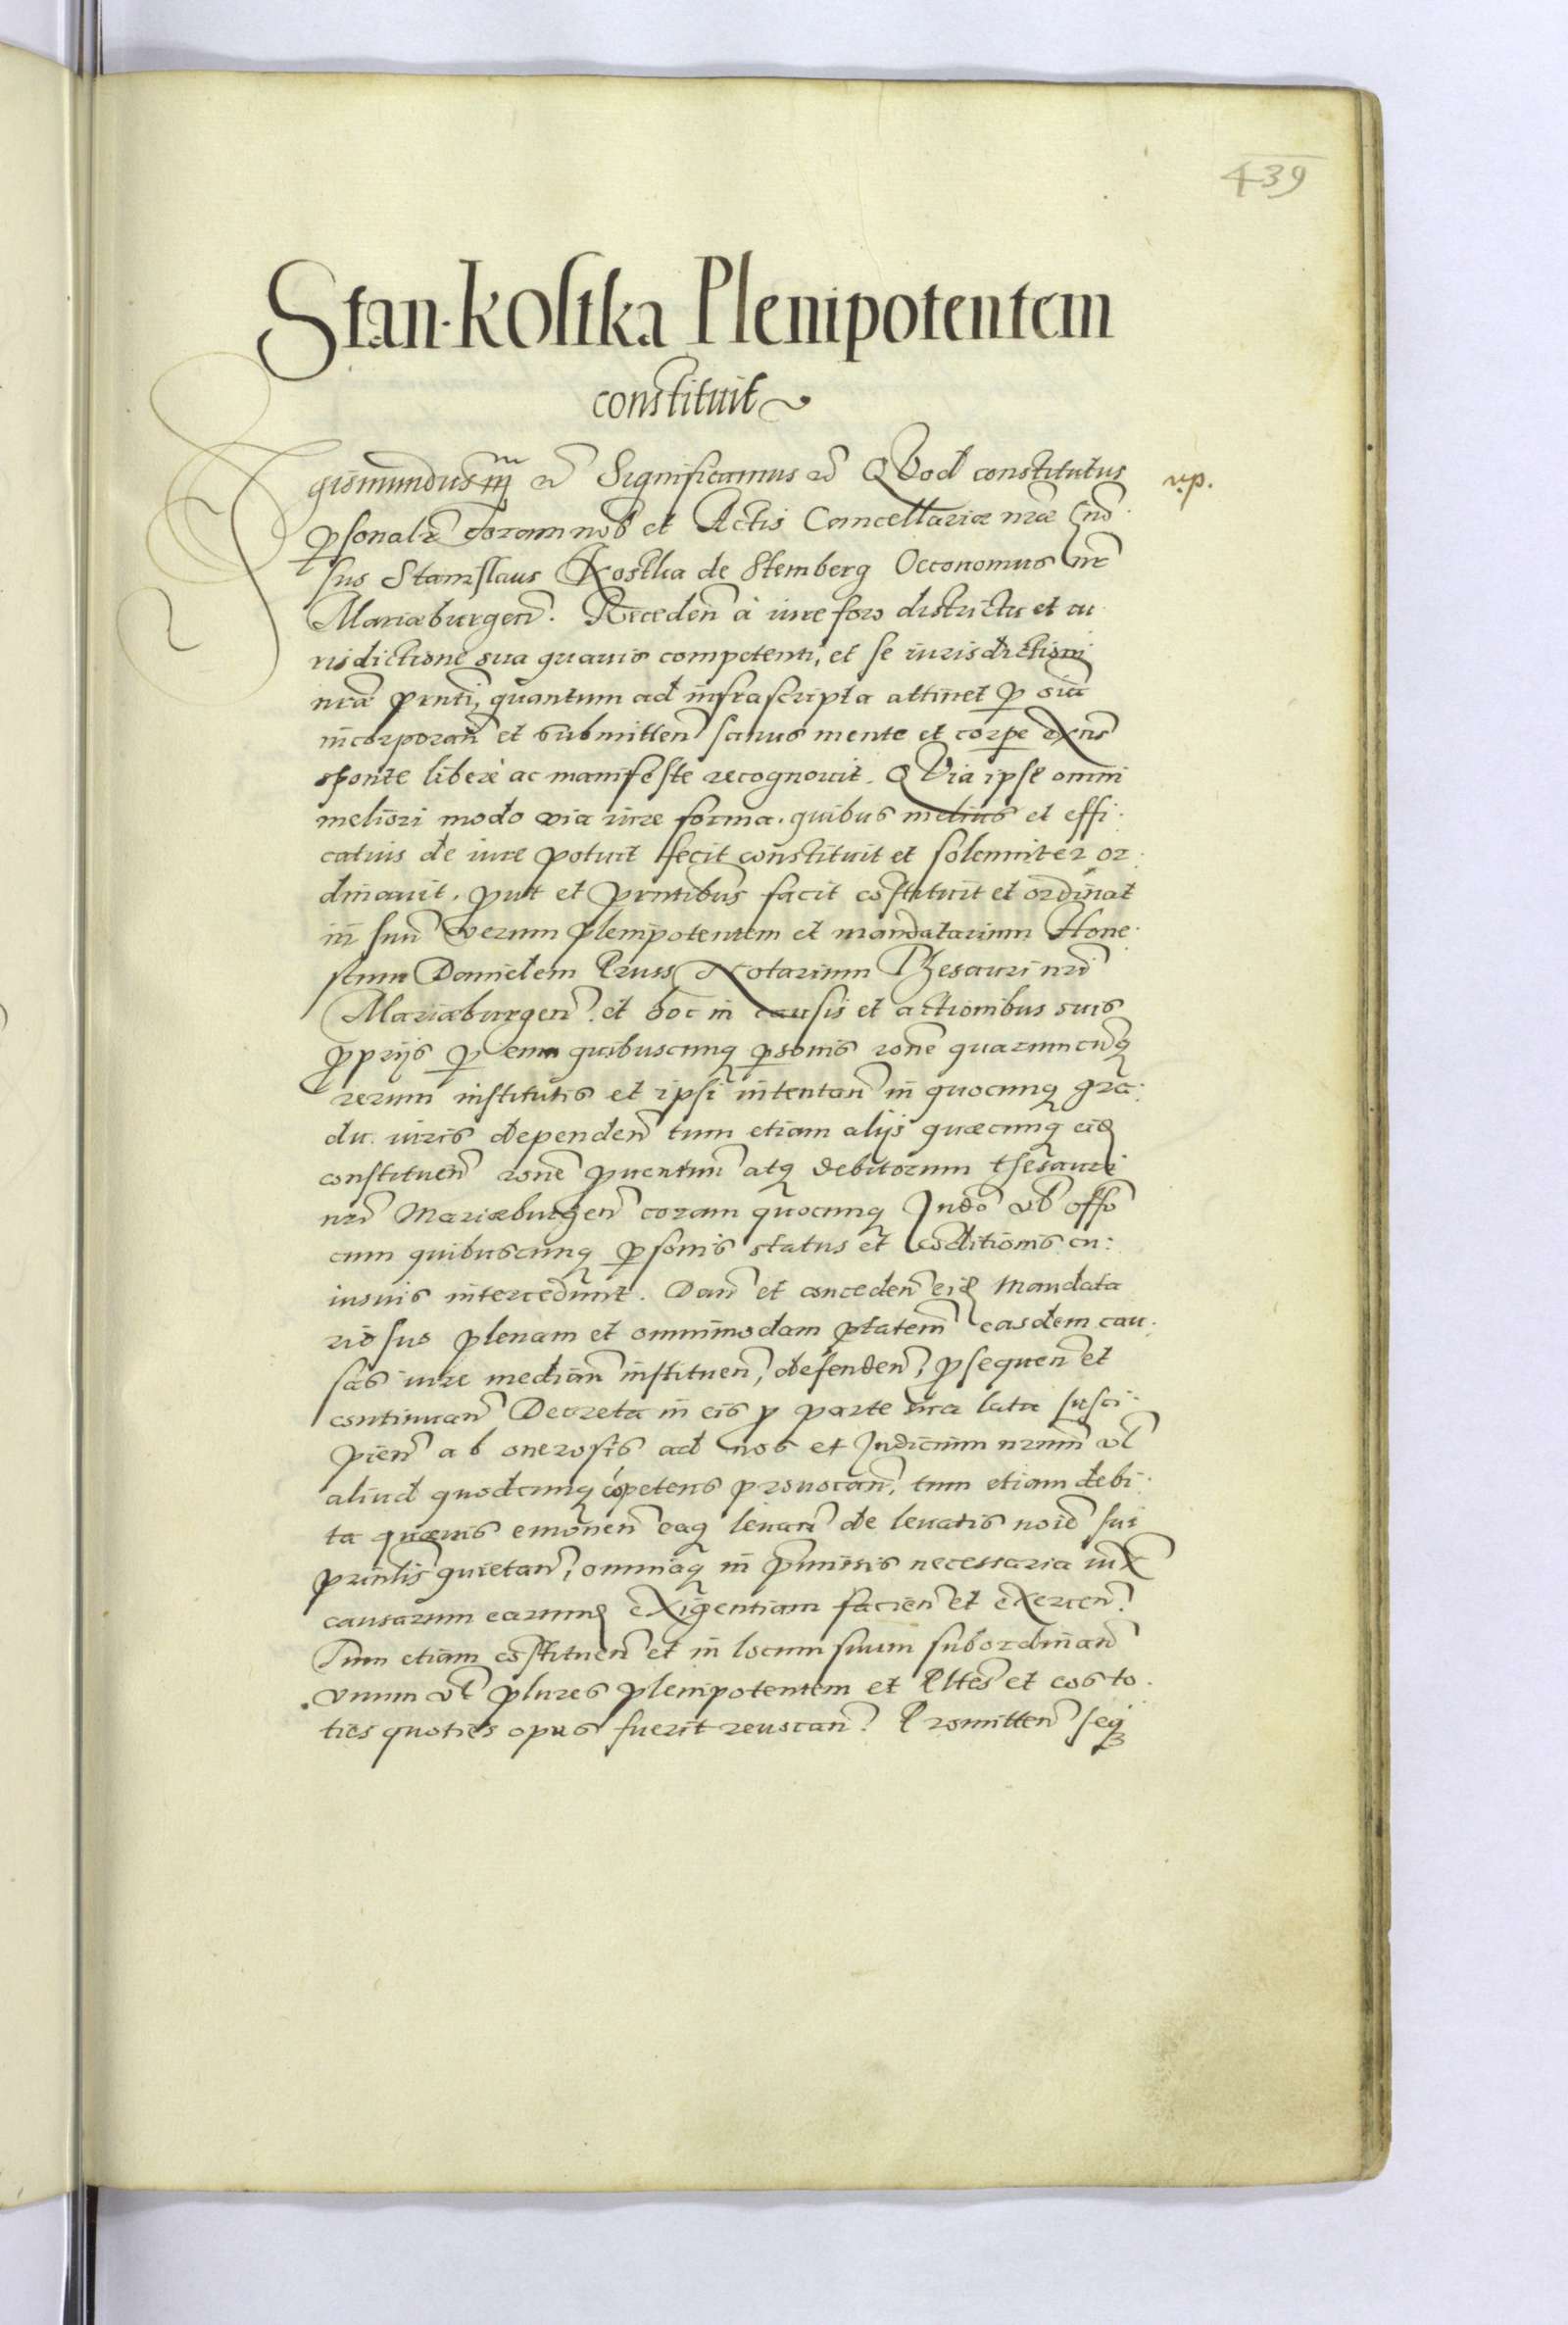 439
Stan. Kostka Plenipotentem
constituit
Sigismundus III etc Significamus etc QVod constitutus
p̱sonalr̃ coram nob̃ et Actis Cancellariæ nr̃æ Gnõ
sus Stanislaus Kostka de Stemberg Oeconomus nr̃
Mariæburgeñ. Recedeñ à iure foro districtu et iu
risdictione sua quauis competenti, et se iurisdictioni
nr̃æ pr̃nti, quantum ad infrascripta attinet p̱ oĩa
incorporañ et submitteñ sanus mente et corpe exñs
sponte liberè ac manifeste recognouit. QVia ipse omni
meliori modo via iure forma. quibus melius et effi.
catius de iure potuit fecit constituit et solenniter or.
dinauit. put et pr̃ntibus facit cõstituit et ordinat
in suũ verum plenipotentem et mandatarium Hone.
stum Danielem Pruss Notarium Thesauri nr̃i
Mariæburgeñ. et hoc in causis et actionibus suis
p̱prijs p̱ eum quibuscunq̃ p̱sonis rõne quarumcũq̃
rerum institutis et ipsi intentañ in quocunq̃ gra:
du iuris dependeñ tum etiam alijs quæcunq̃ eid
constitueñ rõne p̱uentuũ atq̃ debitorum thesauri
nr̃i Mariæburgeñ coram quocunq̃ Iudõ vl̃ offõ
cum quibuscunq̃ p̱sonis status et cõditionis cu:
iusuis intercedunt. Dañ et concedeñ eid Mandata
rio suo plenam et omnimodam ptatem easdem cau.
sas iure mediañ institueñ, defendeñ, p̱sequeñ et
continuañ Decreta in eis p̱ parte sua lata susci:
pieñ ab onerosis ad nos et Iudicium nr̃um vl̃
aliud quodcunq̃ cõpetens prouocañ, tum etiam debi:
ta quæuis emoneñ eaq̃ leuañ de leuatis noiẽ sui
prin̄lis quietañ, omniaq̃ in p̃missis necessaria iux̃
causarum earund exigentiam facieñ et exerceñ.
Tum etiam cõstitueñ et in locum suum subordinañ
vnum vl̃ plures plenipotentem et Pltes et eos to.
ties quoties opus fuerit reuocañ. Promitteñ seq̃